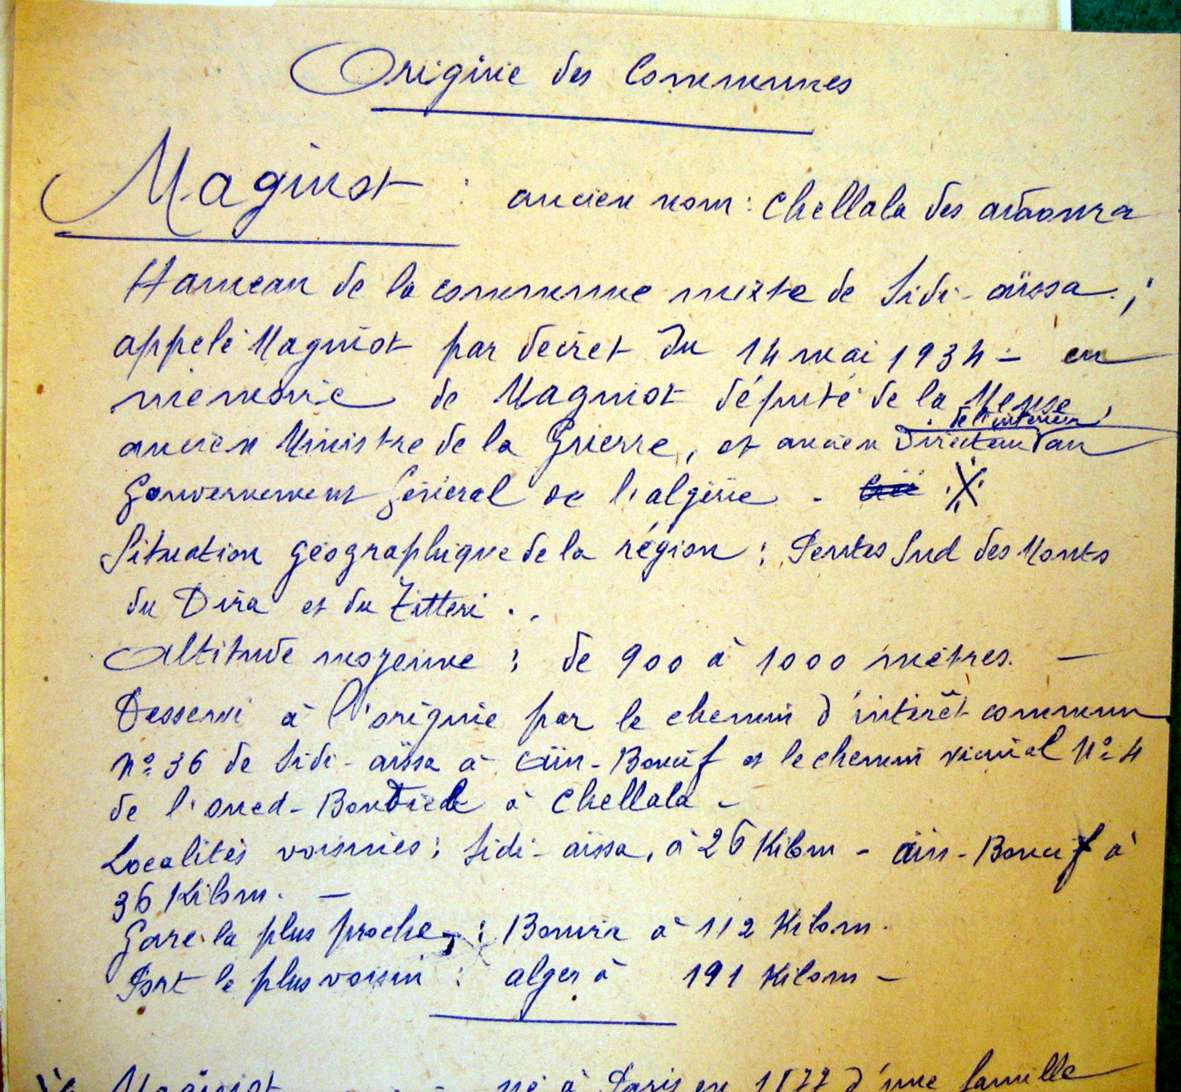 Origine des Communes
Maginot : ancien nom : Chellala des adaoura
Hameau de la commune mixte de Sidi-aïssa. ;
appelé Maginot par décret du 14 mai 1934 - en
mémoire de Maginot député de la Meuse,
de l'intérieur
ancien Ministre de la Guerre, et ancien Directeur au
Gouvernement Général de l'algérie - X
Situation géographique de la région : Pentes Sud des Monts
du Dira et du Titteri . .
Altitude moyenne : de 900 à 1000 mètres. -
Desservi à l'origine par le chemin d'intérêt commun
No 36 de Sidi-aïssa à aïn-Boucif et le chemin vicinal No 4
de l'oued- à Chellala -
Localités voisines : Sidi-aïssa, à 26 Kilom - aïn-Boucif à
36 Kilom. -
Gare la plus proche, : Bouira à 112 Kilom.
Port le plus voisin : alger à 191 Kilom -
Maginot né à Paris en 1877 d'une famille